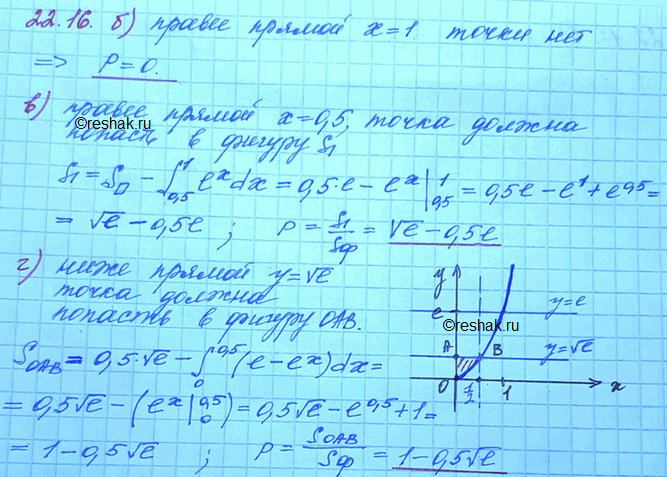 22.16. б) правее прямой x=1 точки нет
=> P=0.
в) правее прямой x=0,5, точка должна
©reshak.ru
попасть в фигуру S₁
S₁ = S□ - ∫₀,₅¹ eˣdx = 0,5·e - eˣ|¹₀,₅ = 0,5e - e¹ + e⁰˒⁵ =
= √e - 0,5e ; P = S₁/Sф = √e - 0,5e
г) ниже прямой y=√e
точка должна
попасть в фигуру OAB.
S_OAB = 0,5·√e - ∫₀⁰˒⁵ (e-eˣ)dx =
= 0,5√e - (eˣ|₀⁰˒⁵) = 0,5√e - e⁰˒⁵ + 1 =
= 1 - 0,5√e ; P = S_OAB/Sф = 1 - 0,5√e
y
e
y=e
©reshak.ru
A
B
y=√e
O
1/2
1
x